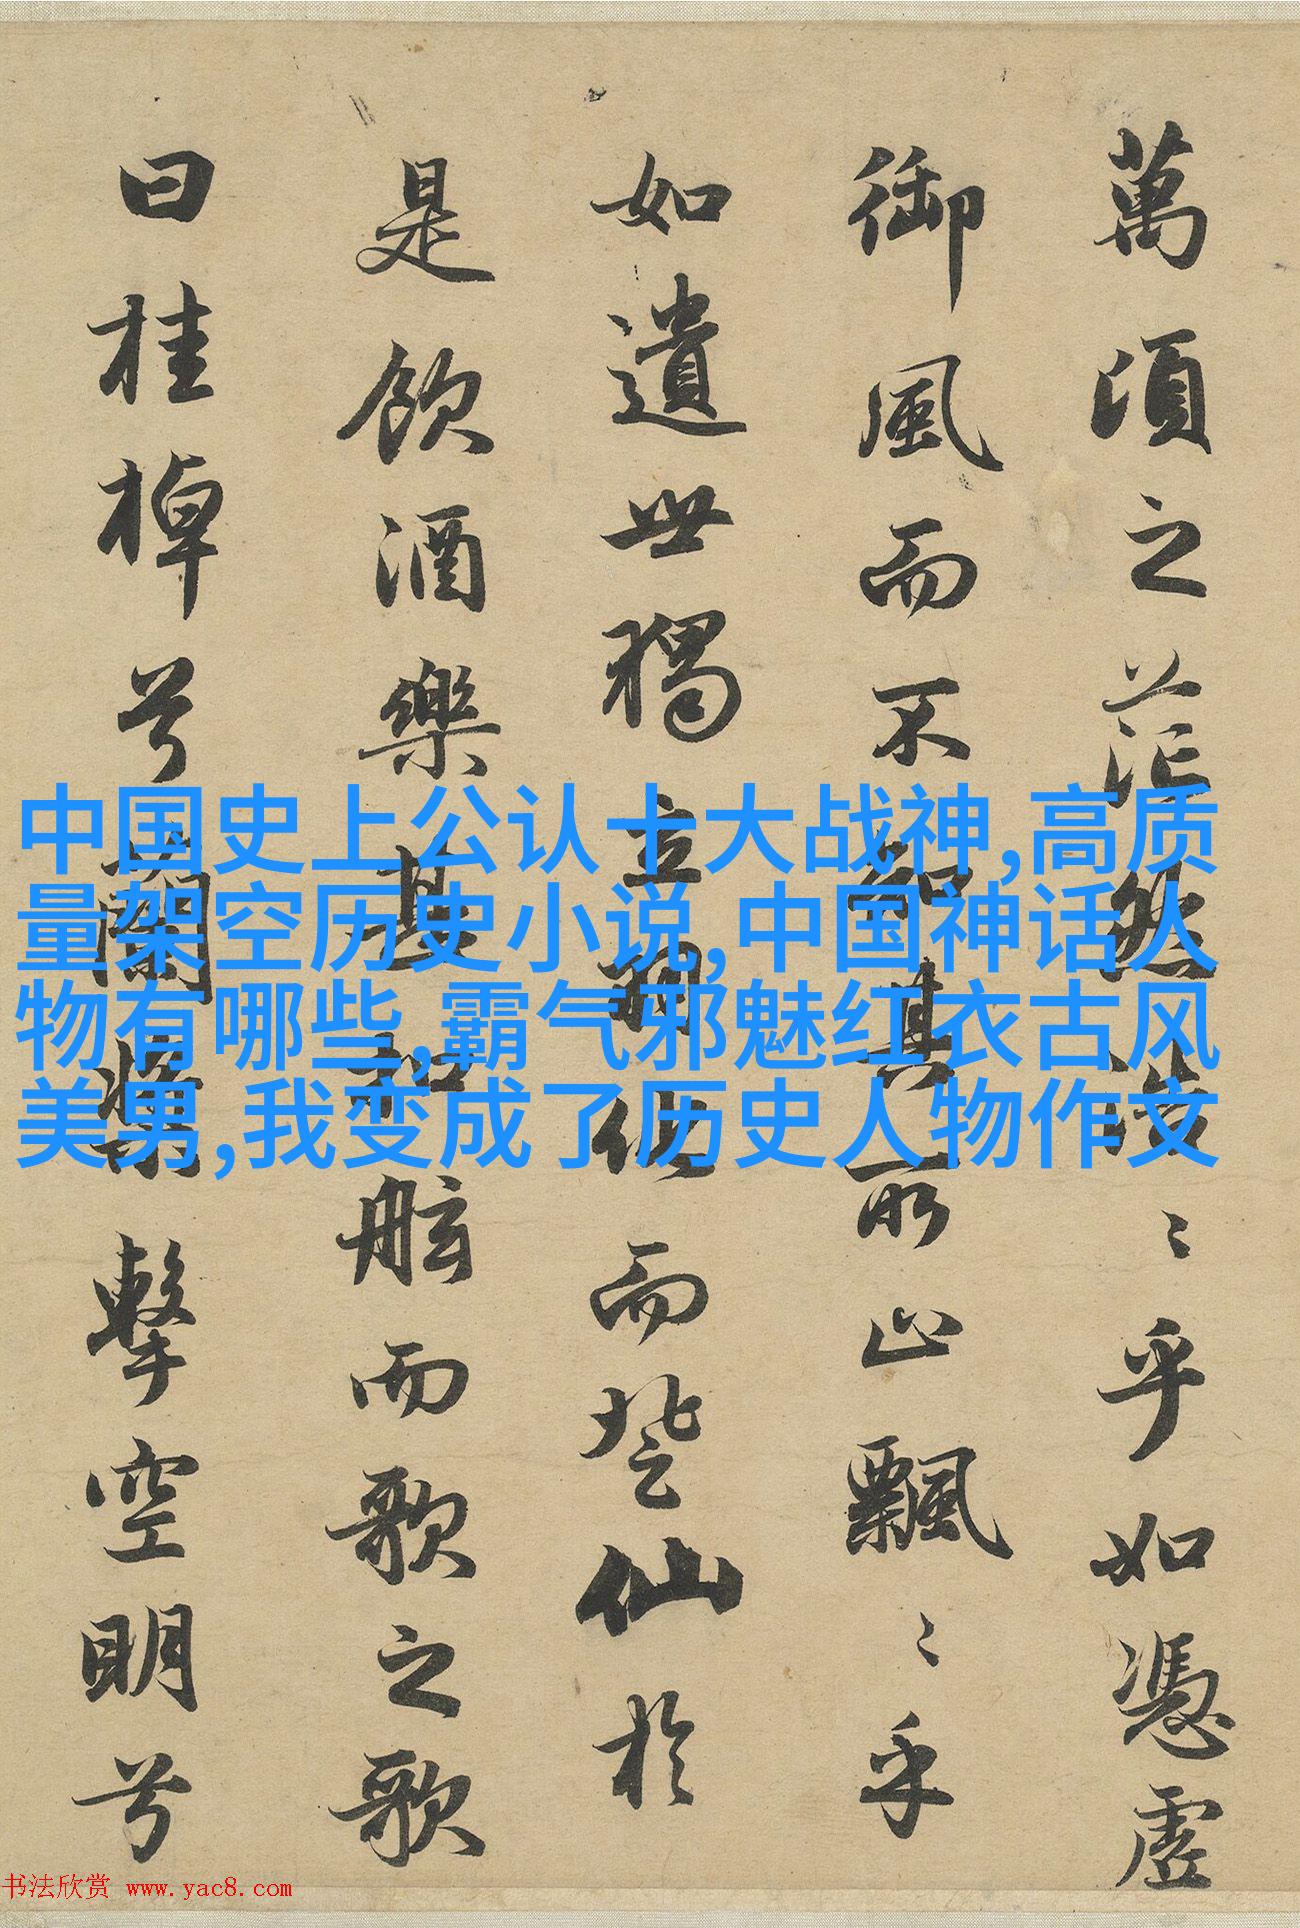 萬頃之茫然浩〻乎如憑虛
御風而不知其所止飄〻乎
如遺世獨立羽化而登仙於
是飲酒樂甚扣舷而歌之歌
曰桂棹兮蘭槳擊空明兮
中国史上公认十大战神,高质
量架空历史小说,中国神话人
物有哪些,霸气邪魅红衣古风
美男,我变成了历史人物作文
书法欣赏 www.yac8.com